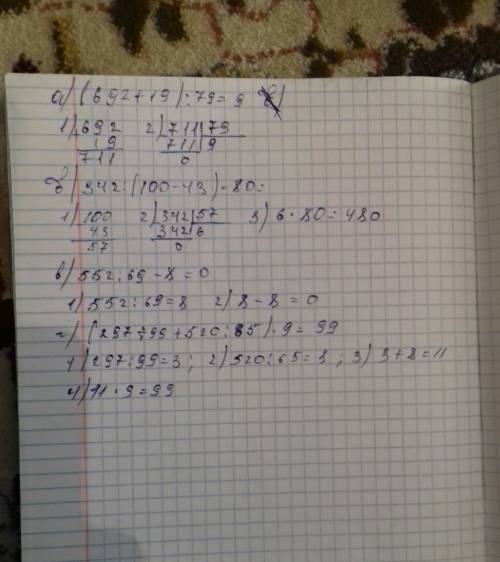 а) (692+19):79=9
1) 692 2) 711 79
19 711 9
711 0
б) 342:(100-43)·80=
1) 100 2) 342 57 3) 6·80=480
43 342 6
57 0
в) 552:69-8=0
1) 552:69=8 2) 8-8=0
г) (297:99+520:65)·9=99
1) 297:99=3; 2) 520:65=8; 3) 3+8=11
4) 11·9=99